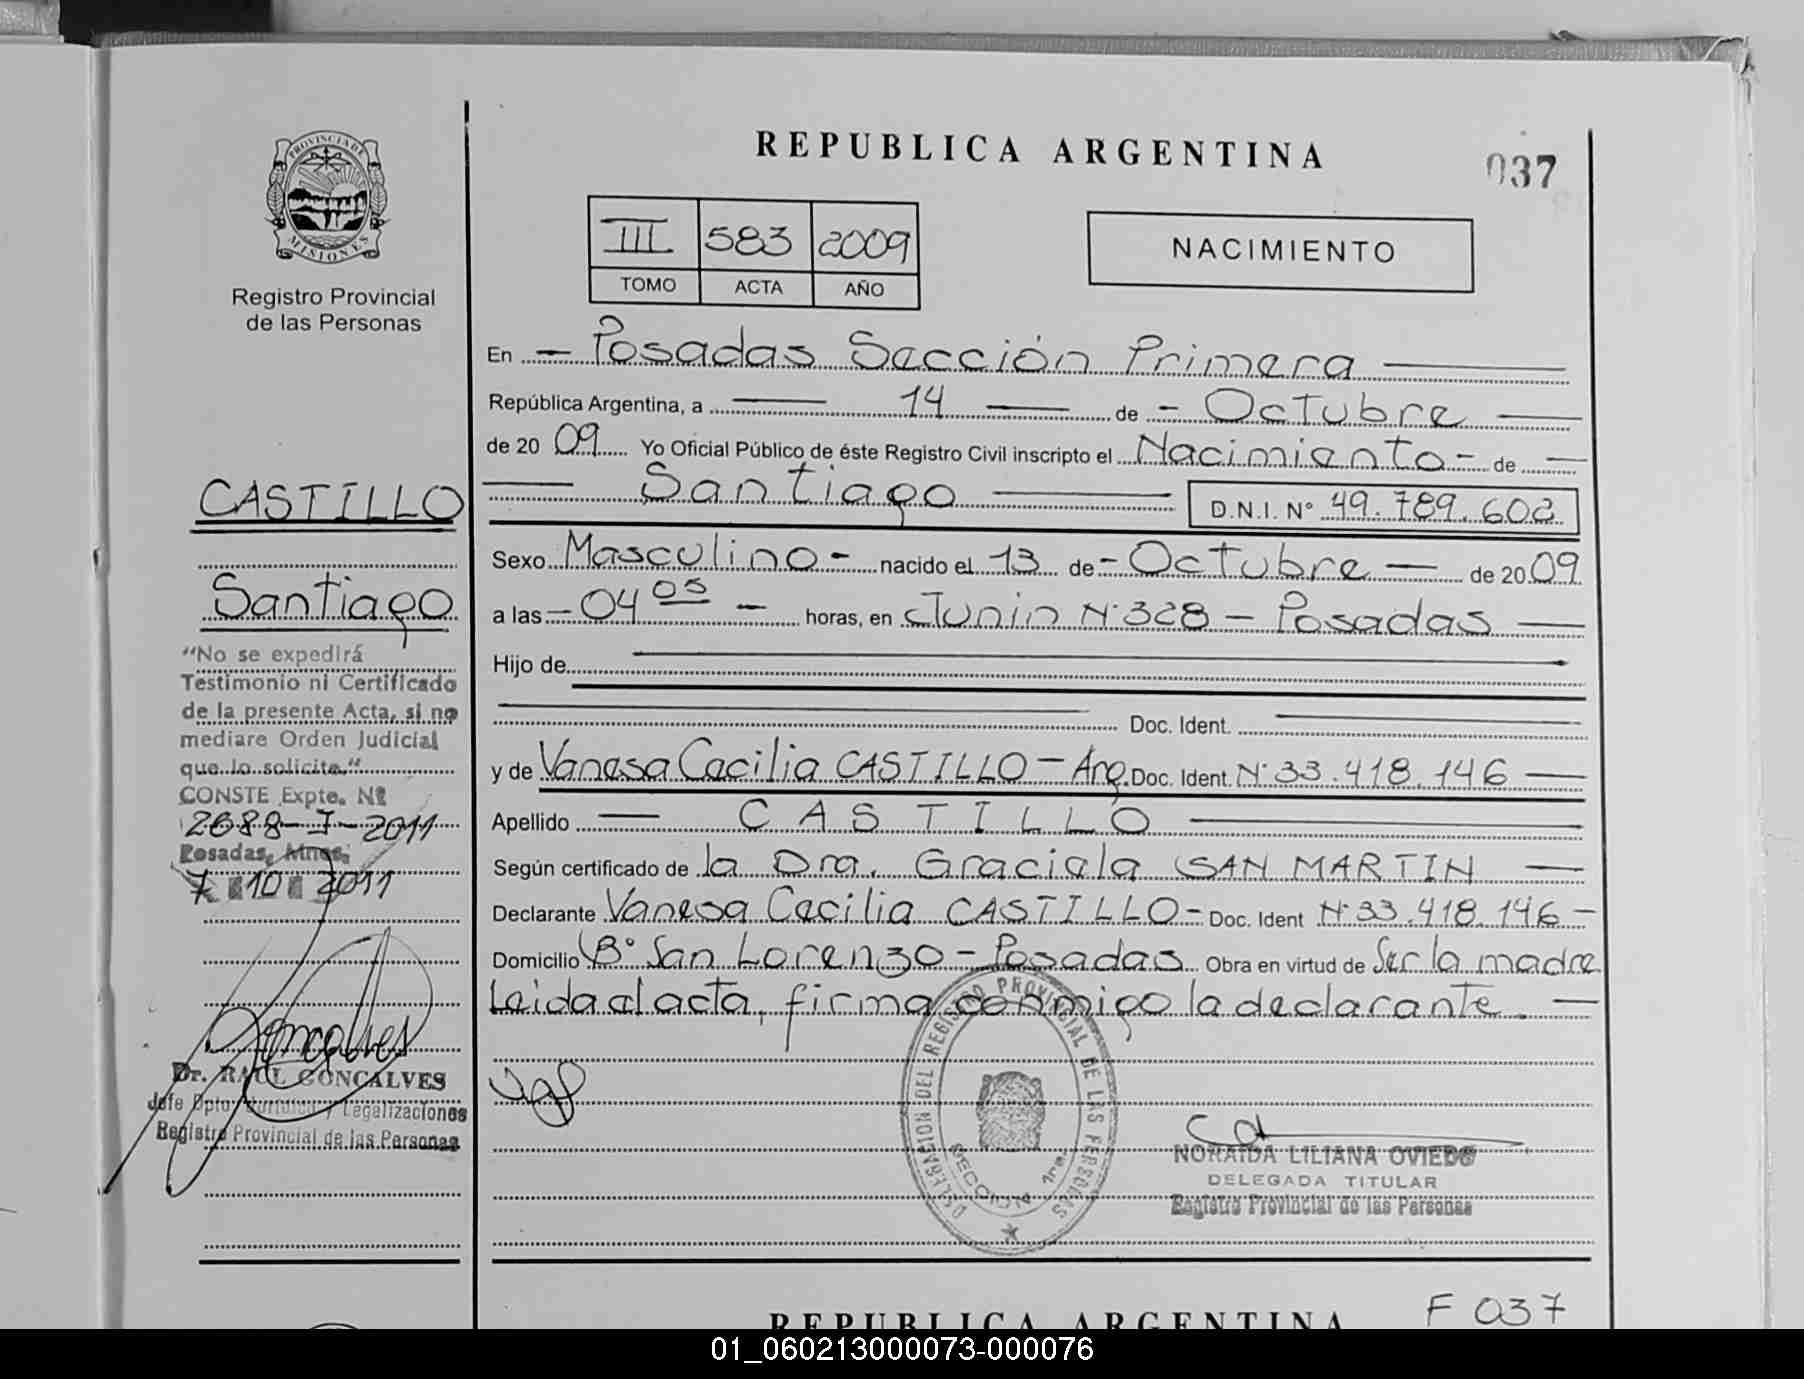 PROVINCIA DE
MISIONES
Registro Provincial
de las Personas
REPUBLICA ARGENTINA
037
III 583 2009
TOMO ACTA AÑO
NACIMIENTO
En - Posadas Sección Primera
República Argentina, a 14 de - Octubre
de 2009 Yo Oficial Público de éste Registro Civil inscripto el Nacimiento - de
Santiago D.N.I. N° 49.789.602
Sexo Masculino - nacido el 13 de - Octubre de 2009
a las - 04 05 - horas, en Junin N° 328 - Posadas
Hijo de
Doc. Ident.
y de Vanesa Cecilia CASTILLO - Arg. Doc. Ident. N° 33.418.146
Apellido CASTILLO
Según certificado de la Dra. Graciela SAN MARTIN
Declarante Vanesa Cecilia CASTILLO - Doc. Ident N° 33.418.146 -
Domicilio B° San Lorenzo - Posadas Obra en virtud de Ser la madre
Leida el acta, firma conmigo la declarante.
DELEGACION DEL REGISTRO PROVINCIAL DE LAS PERSONAS
SECCION 1ra.
NORAIDA LILIANA OVIEDO
DELEGADA TITULAR
Registro Provincial de las Personas
CASTILLO
Santiago
"No se expedirá
Testimonio ni Certificado
de la presente Acta, si no
mediare Orden Judicial
que lo solicite."
CONSTE Expte. Nº
2688-J-2011
Posadas, Mnes,
7 10 2011
Goncalves
Dr. RAUL GONCALVES
Jefe Dpto. Jurídico y Legalizaciones
Registro Provincial de las Personas
F 037
REPUBLICA ARGENTINA
01_060213000073-000076